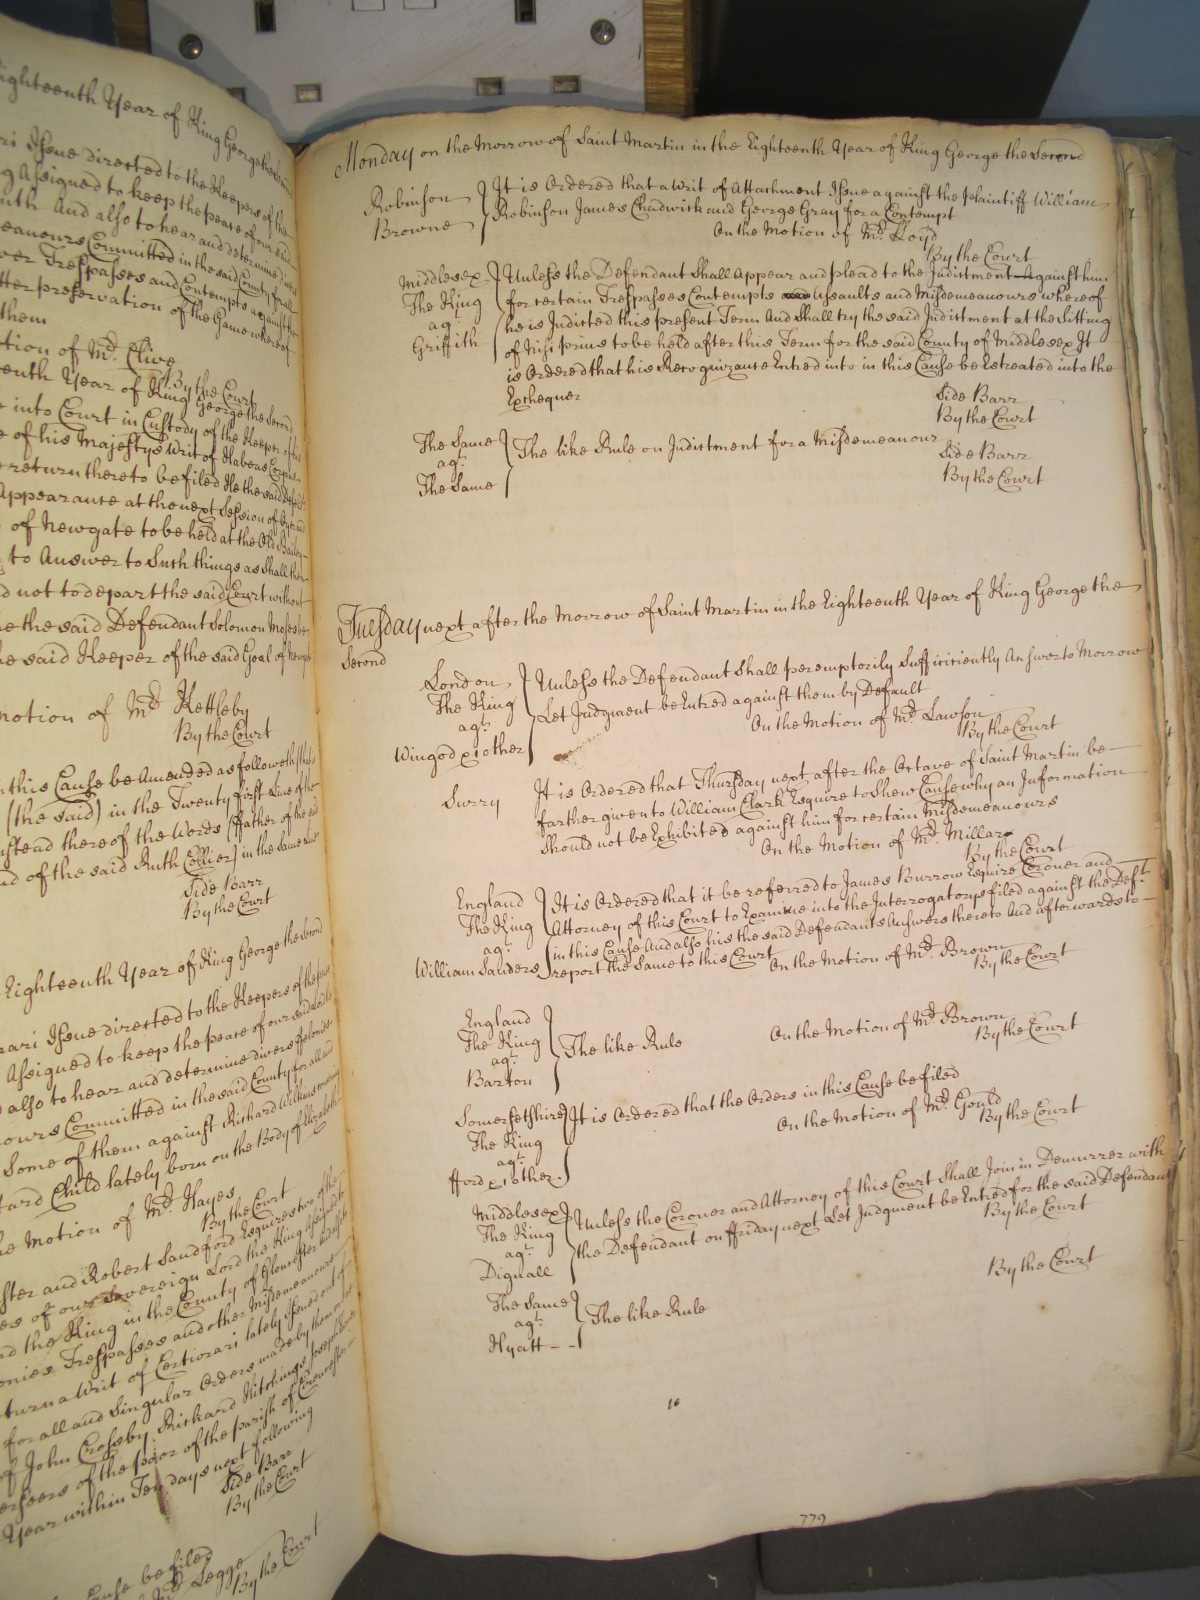 Eighteenth Year of King George the Second
ari Issue directed to the Keepers of the
g Assigned to keep the peace of our said
uth And also to hear and determine divers
eanours Committed in the said County for all
ver Trespasses and Contempts against the
tter preservation of the Game whereof
them
tion of Mr. Clive
By the Court
enth Year of King George the Second
into Court in Custody of the Keeper of his
e of his Majestys Writ of Habeas Corpus
return thereto be filed He the said Defend
Appearance at the next Session of Oyer and
of Newgate to be held at the Old Bailey
to Answer to Such things as Shall then
d not to depart the said Court without
e the said Defendant Solomon Moses be
he said Keeper of the said Goal of Newgate
motion of Mr. Kettleby
By the Court
this Cause be Amended as followeth
(the said) in the Twenty first Line of the
nstead thereof the Words (ffather of the said
nd of the said Ruth Collier) in the same Line
Side Barr
By the Court
Eighteenth Year of King George the Second
rari Issue directed to the Keepers of the peace
Assigned to keep the peace of our said Lord the
also to hear and determine divers ffelonies
ours Committed in the said County for all and
Some of them against Richard Wilkins
tard Child lately born on the Body of Elizabeth
he Motion of Mr. Hayes
By the Court
ster and Robert Sandford Esquires two of the
es of our Sovereign Lord the King Assigned to
ad the King in the County of Gloucester
onies Trespasses and other Misdemeanours
turn a Writ of Certiorari lately Issued out of
for all and Singular Orders made by them
of John Crosby Richard Hitchings Joseph
erseers of the poor of the parish of Cirencester
Year within Ten days next following
Side Barr
By the Court
Cause be filed
Mr. Legge
By the Court
Monday on the Morrow of Saint Martin in the Eighteenth Year of King George the Second
Robinson
Browne
It is Ordered that a Writ of Attachment Issue against the Plaintiff William
Robinson James Chadwick and George Gray for a Contempt
On the Motion of Mr. Lloyd
By the Court
Middlesex
The King
agt.
Griffith
Unless the Defendant Shall Appear and plead to the Indictment Against him
for certain Trespasses Contempts and Assaults and Misdemeanours whereof
he is Indicted this present Term And Shall try the said Indictment at the Sitting
of Nisi prius to be held after this Term for the said County of Middlesex It
is Ordered that his Recognizance Entred into in this Cause be Estreated into the
Exchequer
Side Barr
By the Court
The Same
agt.
The Same
The like Rule on Indictment for a Misdemeanour
Side Barr
By the Court
Tuesday next after the Morrow of Saint Martin in the Eighteenth Year of King George the
Second
London
The King
agt.
Wingod & other
Unless the Defendant Shall peremptorily Sufficiciently Answer to Morrow
Let Judgment be Entred against them by Default
On the Motion of Mr. Lawson
By the Court
Surry
It is Ordered that Thursday next after the Octave of Saint Martin be
farther given to William Clark Esquire to Shew Cause why an Information
Should not be Exhibited against him for certain Misdemeanours
On the Motion of Mr. Millar
By the Court
England
The King
agt.
William Sanders
It is Ordered that it be referred to James Burrow Esquire Coroner and
Attorney of this Court to Examine into the Interrogatorys filed against the Deft.
in this Cause And also his the said Defendants Answers thereto And afterwards to
report the Same to this Court
On the Motion of Mr. Brown
By the Court
England
The King
agt.
Barton
The like Rule
On the Motion of Mr. Brown
By the Court
Somersetshire
The King
agt.
fford & other
It is Ordered that the Orders in this Cause be filed
On the Motion of Mr. Gould
By the Court
Middlesex
The King
agt.
Dignall
Unless the Coroner and Attorney of this Court Shall Join in Demurrer with
the Defendant on ffriday next Let Judgment be Entred for the said Defendant
By the Court
The Same
agt.
Hyatt
The like Rule
By the Court
779